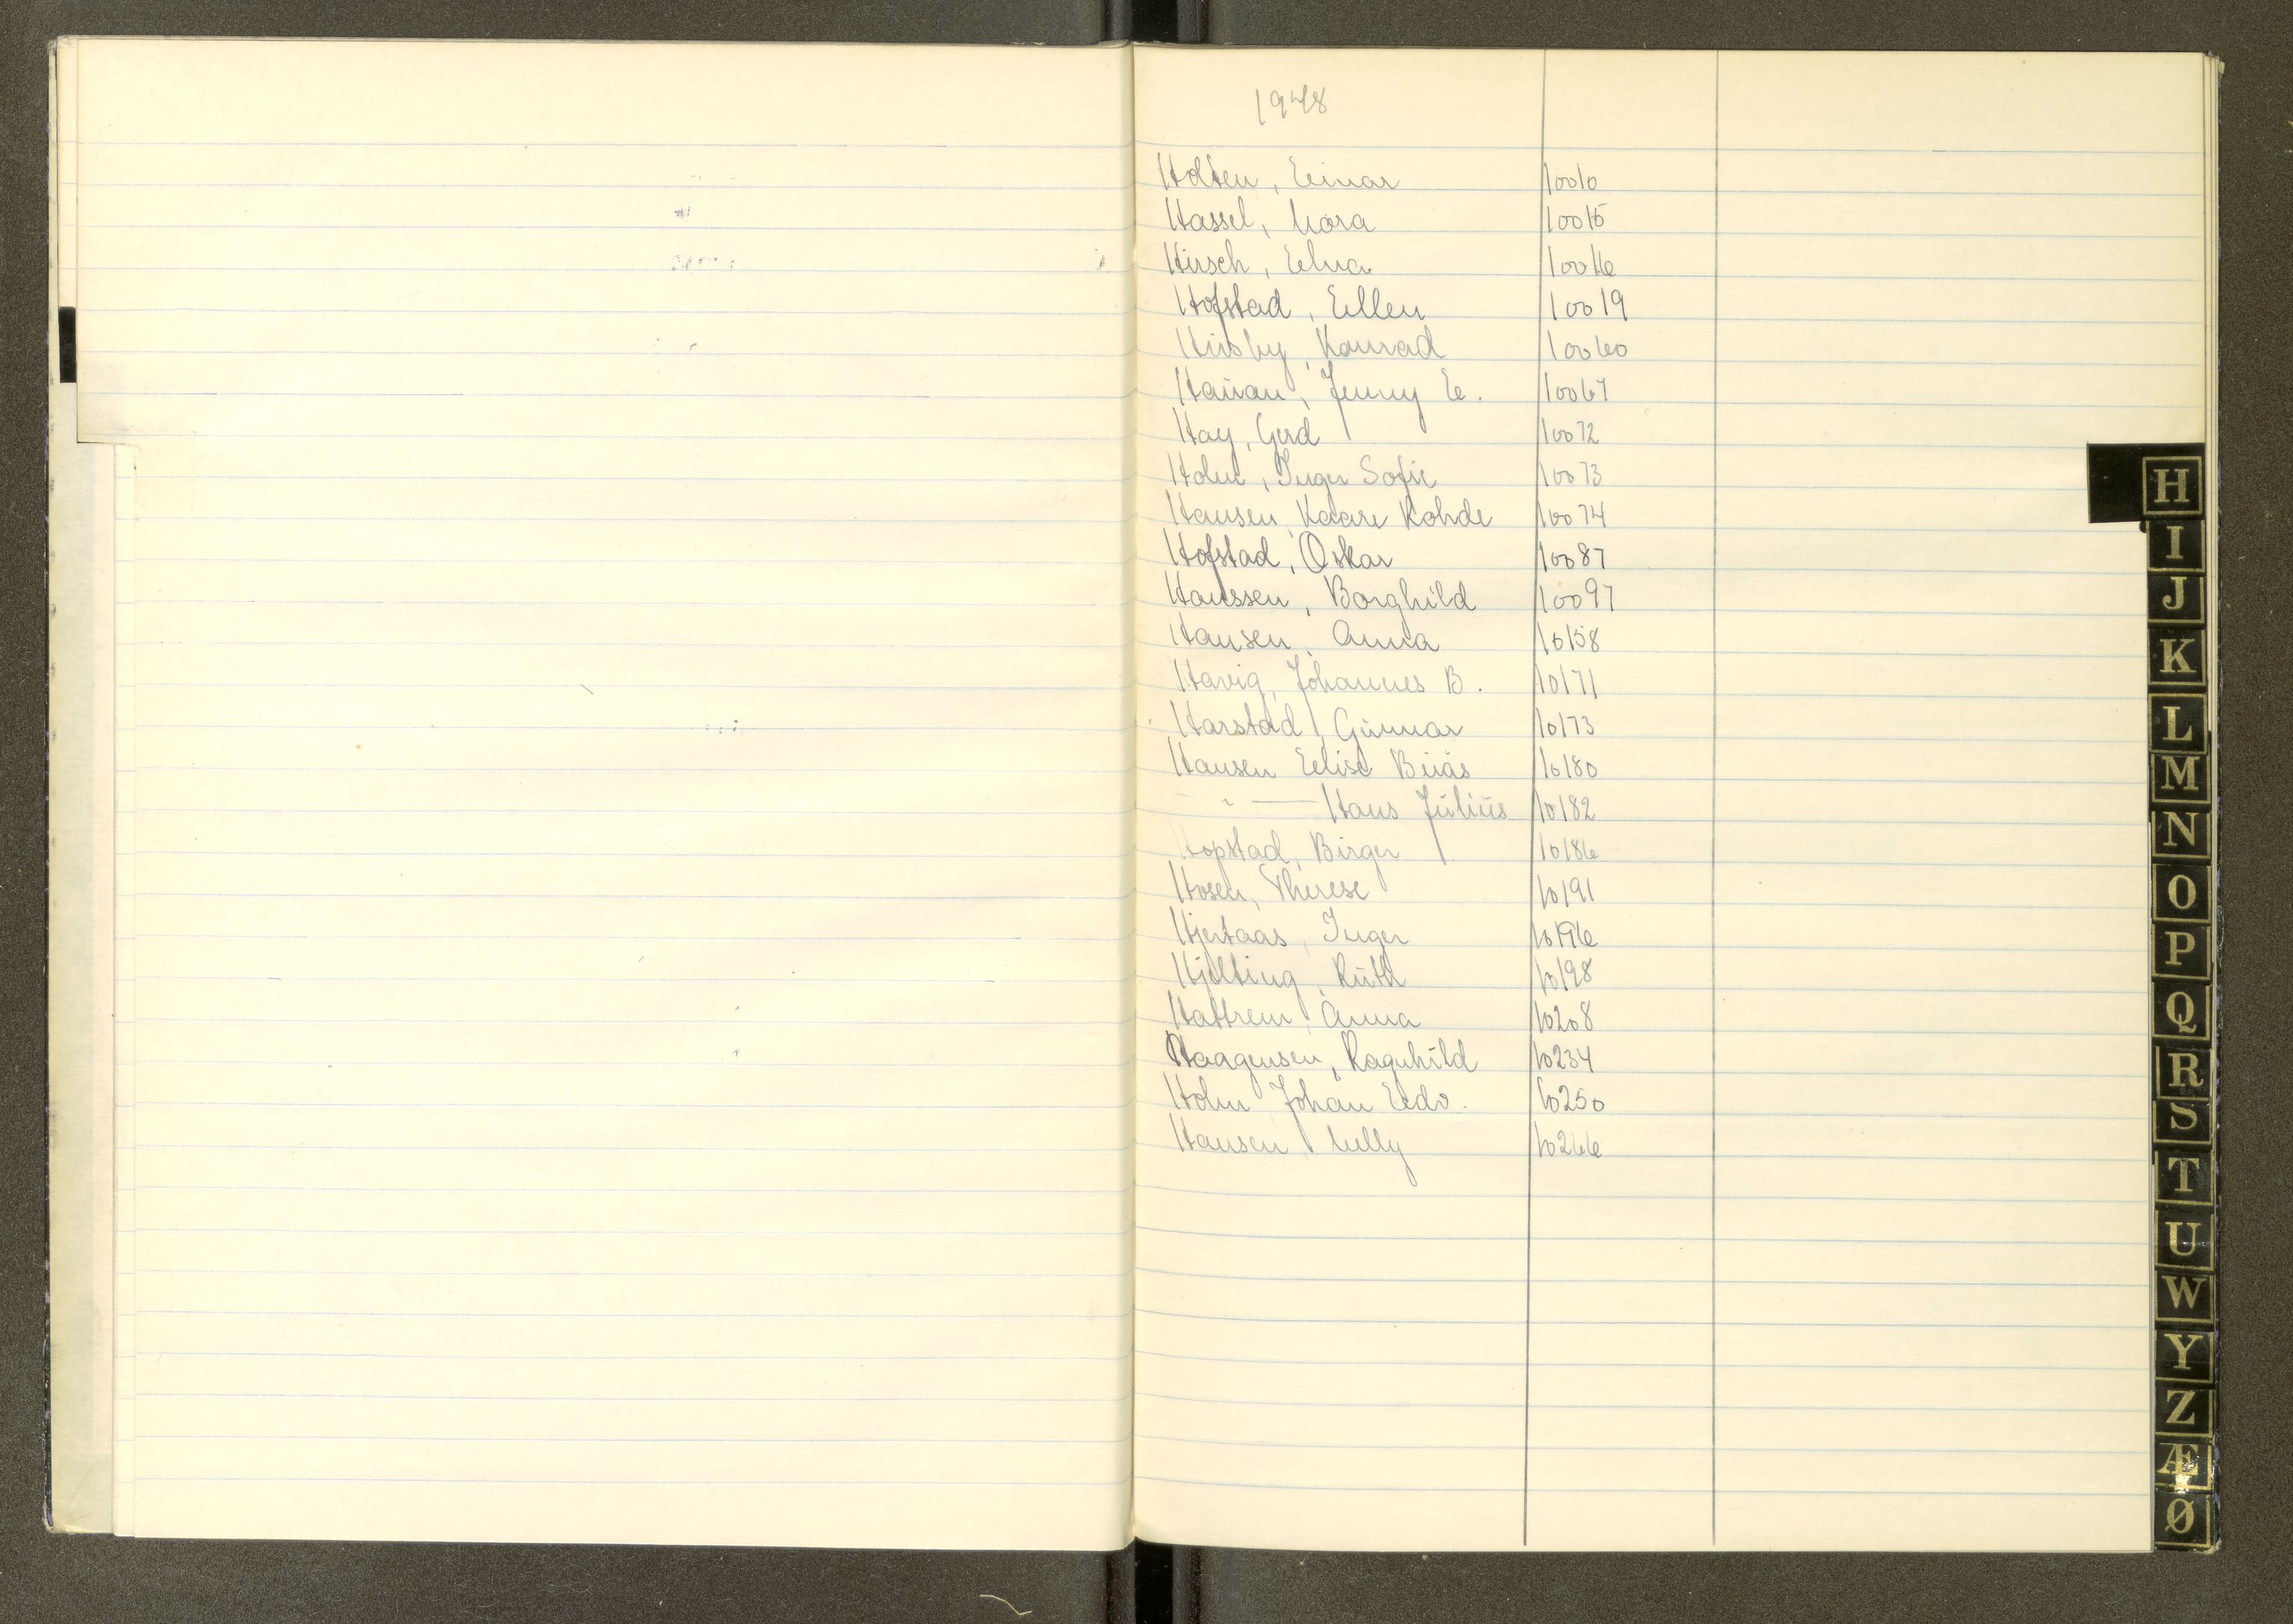 1948
Holten, Einar 10010
Hassel, Nora 10015
Hirsch, Elna 10016
Hofstad, Ellen 10019
Husby, Konrad 10060
Hauan, Jenny E. 10067
Hay, Gerd 10072
Holm, Inger Sofie 10073
Hansen, Kaare Rohde 10074
Hofstad, Oskar 10087
Hanssen, Borghild 10097
Hansen, Anna 10158
Havig, Johannes B. 10171
Harstad, Gunnar 10173
Hansen Elise Buås 10180
— " — Hans Julius 10182
Hopstad, Birger 10186
Hosen, Therese 10191
Hjertaas, Inger 10196
Hjelting, Ruth 10198
Hattrem, Anna 10208
Haagensen, Ragnhild 10234
Holm Johan Edv. 10250
Hansen Nelly 10266
H
I
J
K
L
M
N
O
P
Q
R
S
T
U
W
Y
Z
Æ
Ø